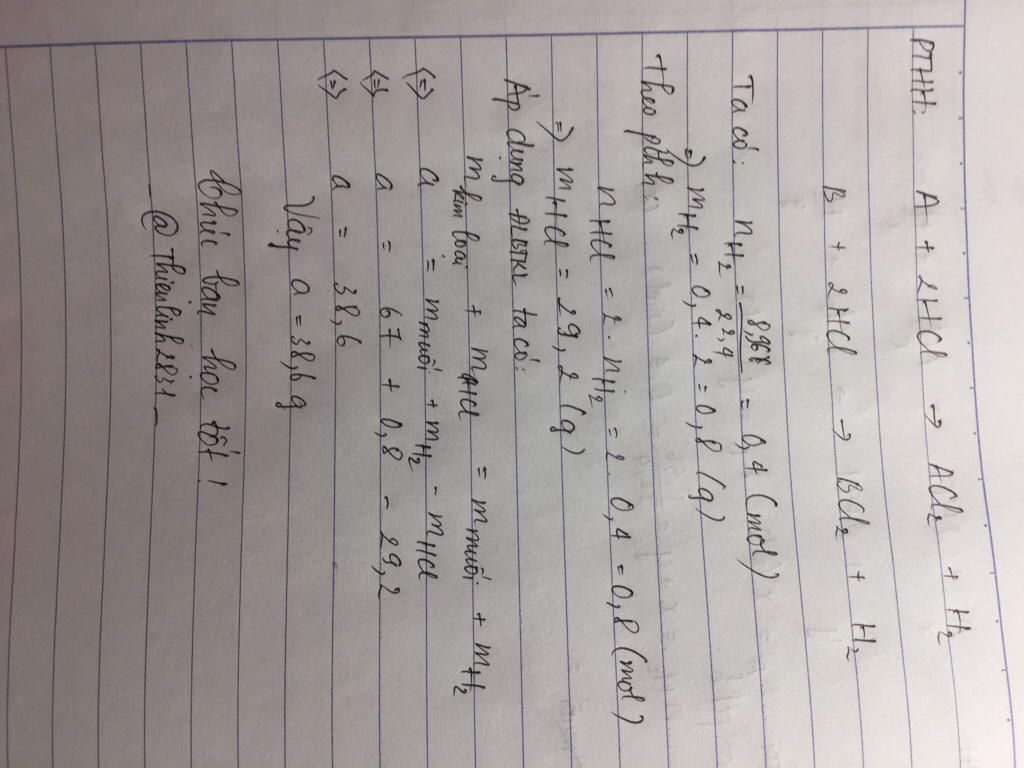 PTHH: A + 2HCl → ACl₂ + H₂
B + 2HCl → BCl₂ + H₂
Ta có: nH₂ = 8,968/22,4 = 0,4 (mol)
=) mH₂ = 0,4.2 = 0,8 (g)
Theo ptHh:
nHCl = 2.nH₂ = 2.0,4 = 0,8 (mol)
=) mHCl = 29,2 (g)
Áp dụng ĐLBTKL ta có:
m kim loại + mHCl = m muối + mH₂
(=) a = m muối + mH₂ - mHCl
(=) a = 67 + 0,8 - 29,2
(=) a = 38,6
Vậy a = 38,6 g
Chúc bạn học tốt!
_@Thienlinh2831_